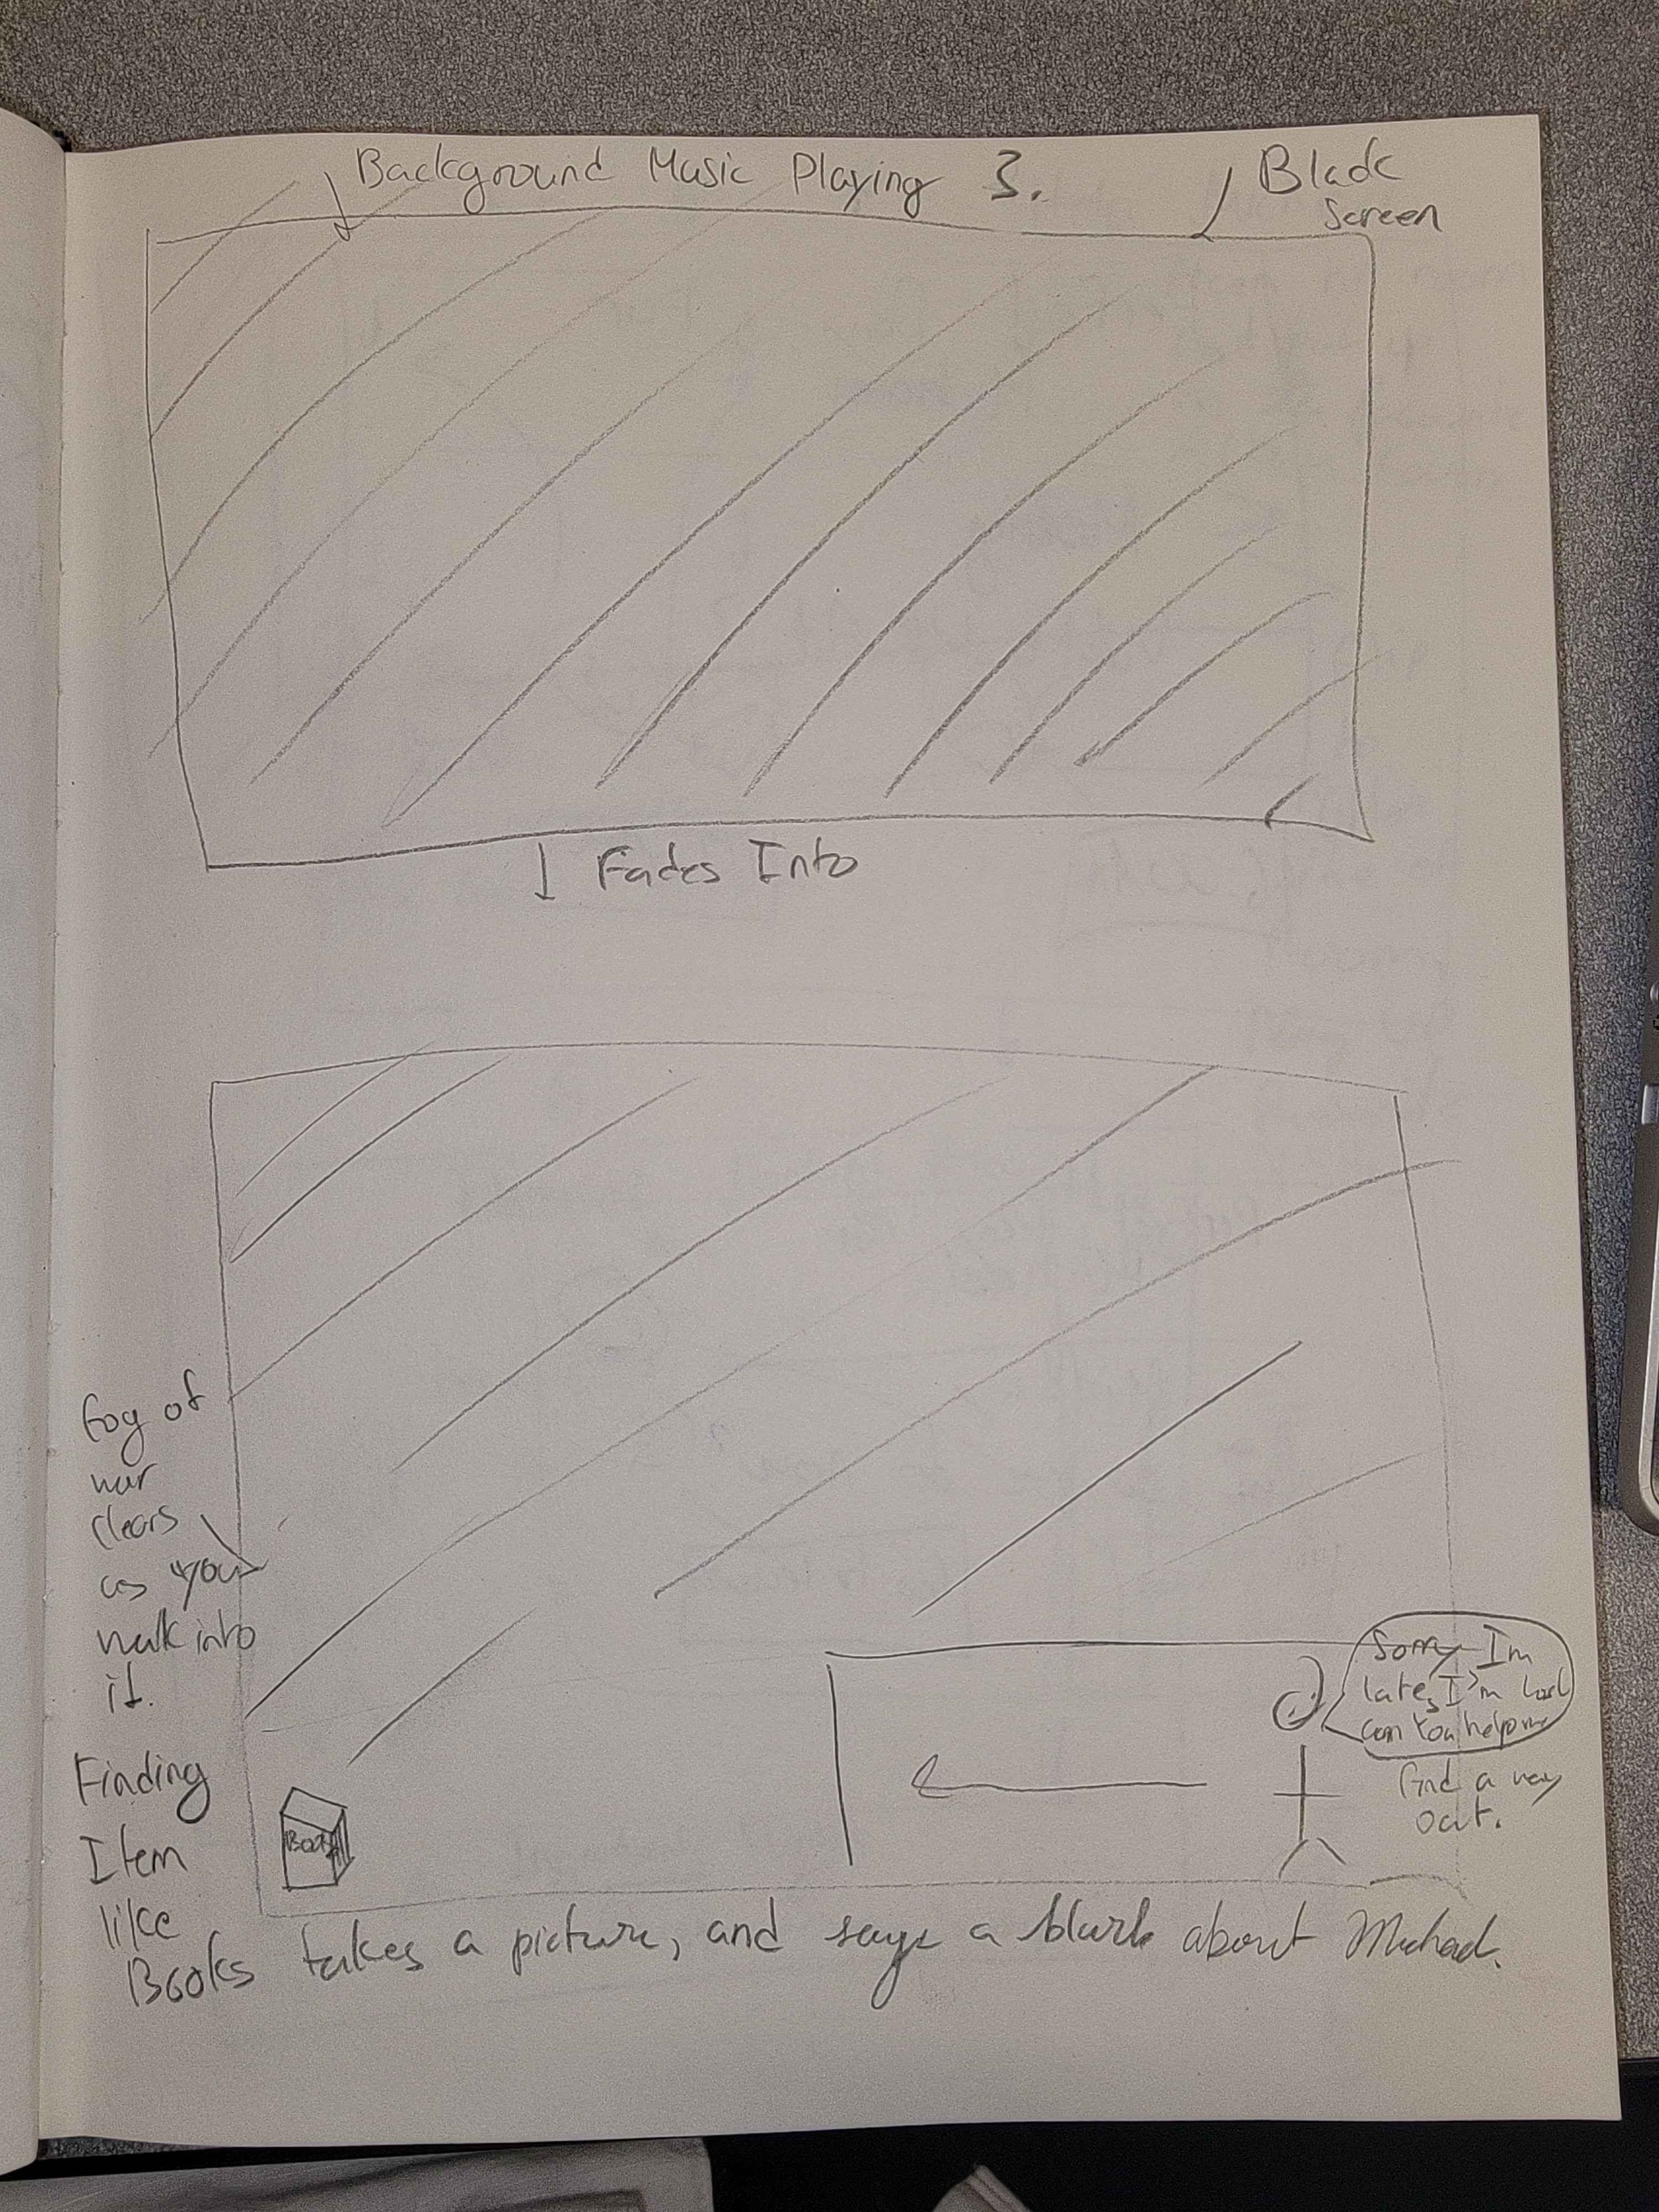 Background Music Playing 3.
Black
Screen
Fades Into
fog of
war
clears
as you
walk into
it.
Sorry Im
late, I'm lost
can you help me
find a way
out.
BOOK
Finding
Item
like
Books takes a picture, and says a blurb about Michael.